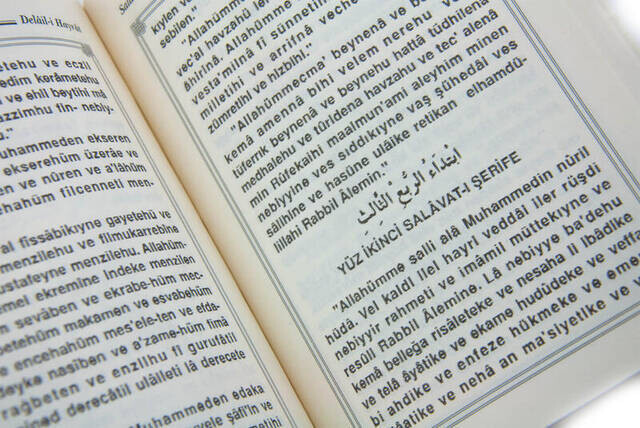 Delâil-i Hayrât
etehu ve eczil
edim kerâmetehu
ve ehil beytihi mâ
zzimhu fin- nebiy-
uhammeden ekseren
ekserehüm üzerâe ve
en ve nûren ve a'lâhüm
hüm filcenneti men-
al fissâbikıyne gayetehü ve
menzilehu ve filmukarrebine
ustafeyne menzilehu. Allahüm-
mel ekremine Indeke menzilen
n sevâben ve ekrabe-hüm mec-
betehüm makamen ve esvabehüm
ve encehahüm mes'ele-ten ve efda-
deyke nasiben ve a'zame-hüm fimâ
rağbeten ve enzilhu fi gurufâtil
mined derecâtil ulâlleti lâ derecete
Muhammeden edaka
kıylen ve
sebilen.
vec'al havzahu
âhirînâ. Allahümme
vesta'milnâ fi sünnetihi
milletihi ve arrifnâ vechehu
zümretihi ve hizbihi."
"Allahümmecma' beynenâ ve
kemâ amennâ bihi velem nerehu ve
tüferrik beynenâ ve beynehu hattâ tüdhilenâ
medhalehu ve tûridena havzahu ve tec' alenâ
min Rüfekaihi maalmun'ami aleyhim minen
nebiyyine ves sıddıkıyne vaş şühedâi ves
sâlihîne ve hasüne ulâike retikan elhamdü-
lillahi Rabbil Âlemin."
اِبْتِدَاءُ الرُّبُعِ الثَّالِثِ
YÜZ İKİNCİ SALÂVAT-I ŞERİFE
"Allahümme salli alâ Muhammedin nûril
hüdâ. Vel kaldi ilel hayri veddâi iler rüşdi
nebiyyir rahmeti ve imâmil müttekıyne ve
resûli Rabbil Âlemine. Lâ nebiyye ba'dehu
kemâ belleğa risâleteke ve nesaha li ibâdike
ve telâ âyâtike ve ekame hudûdeke ve veffâ
bi ahdike ve enfeze hükmeke ve
tâatike ve nehâ an ma'siyetike ve